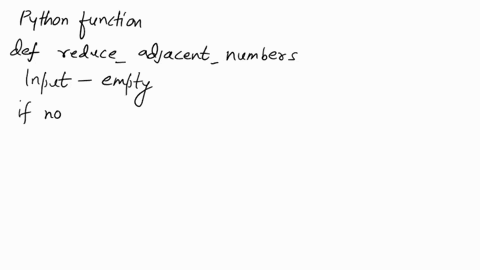 Python function
def reduce_ adjacent_ numbers
Input - empty
if no